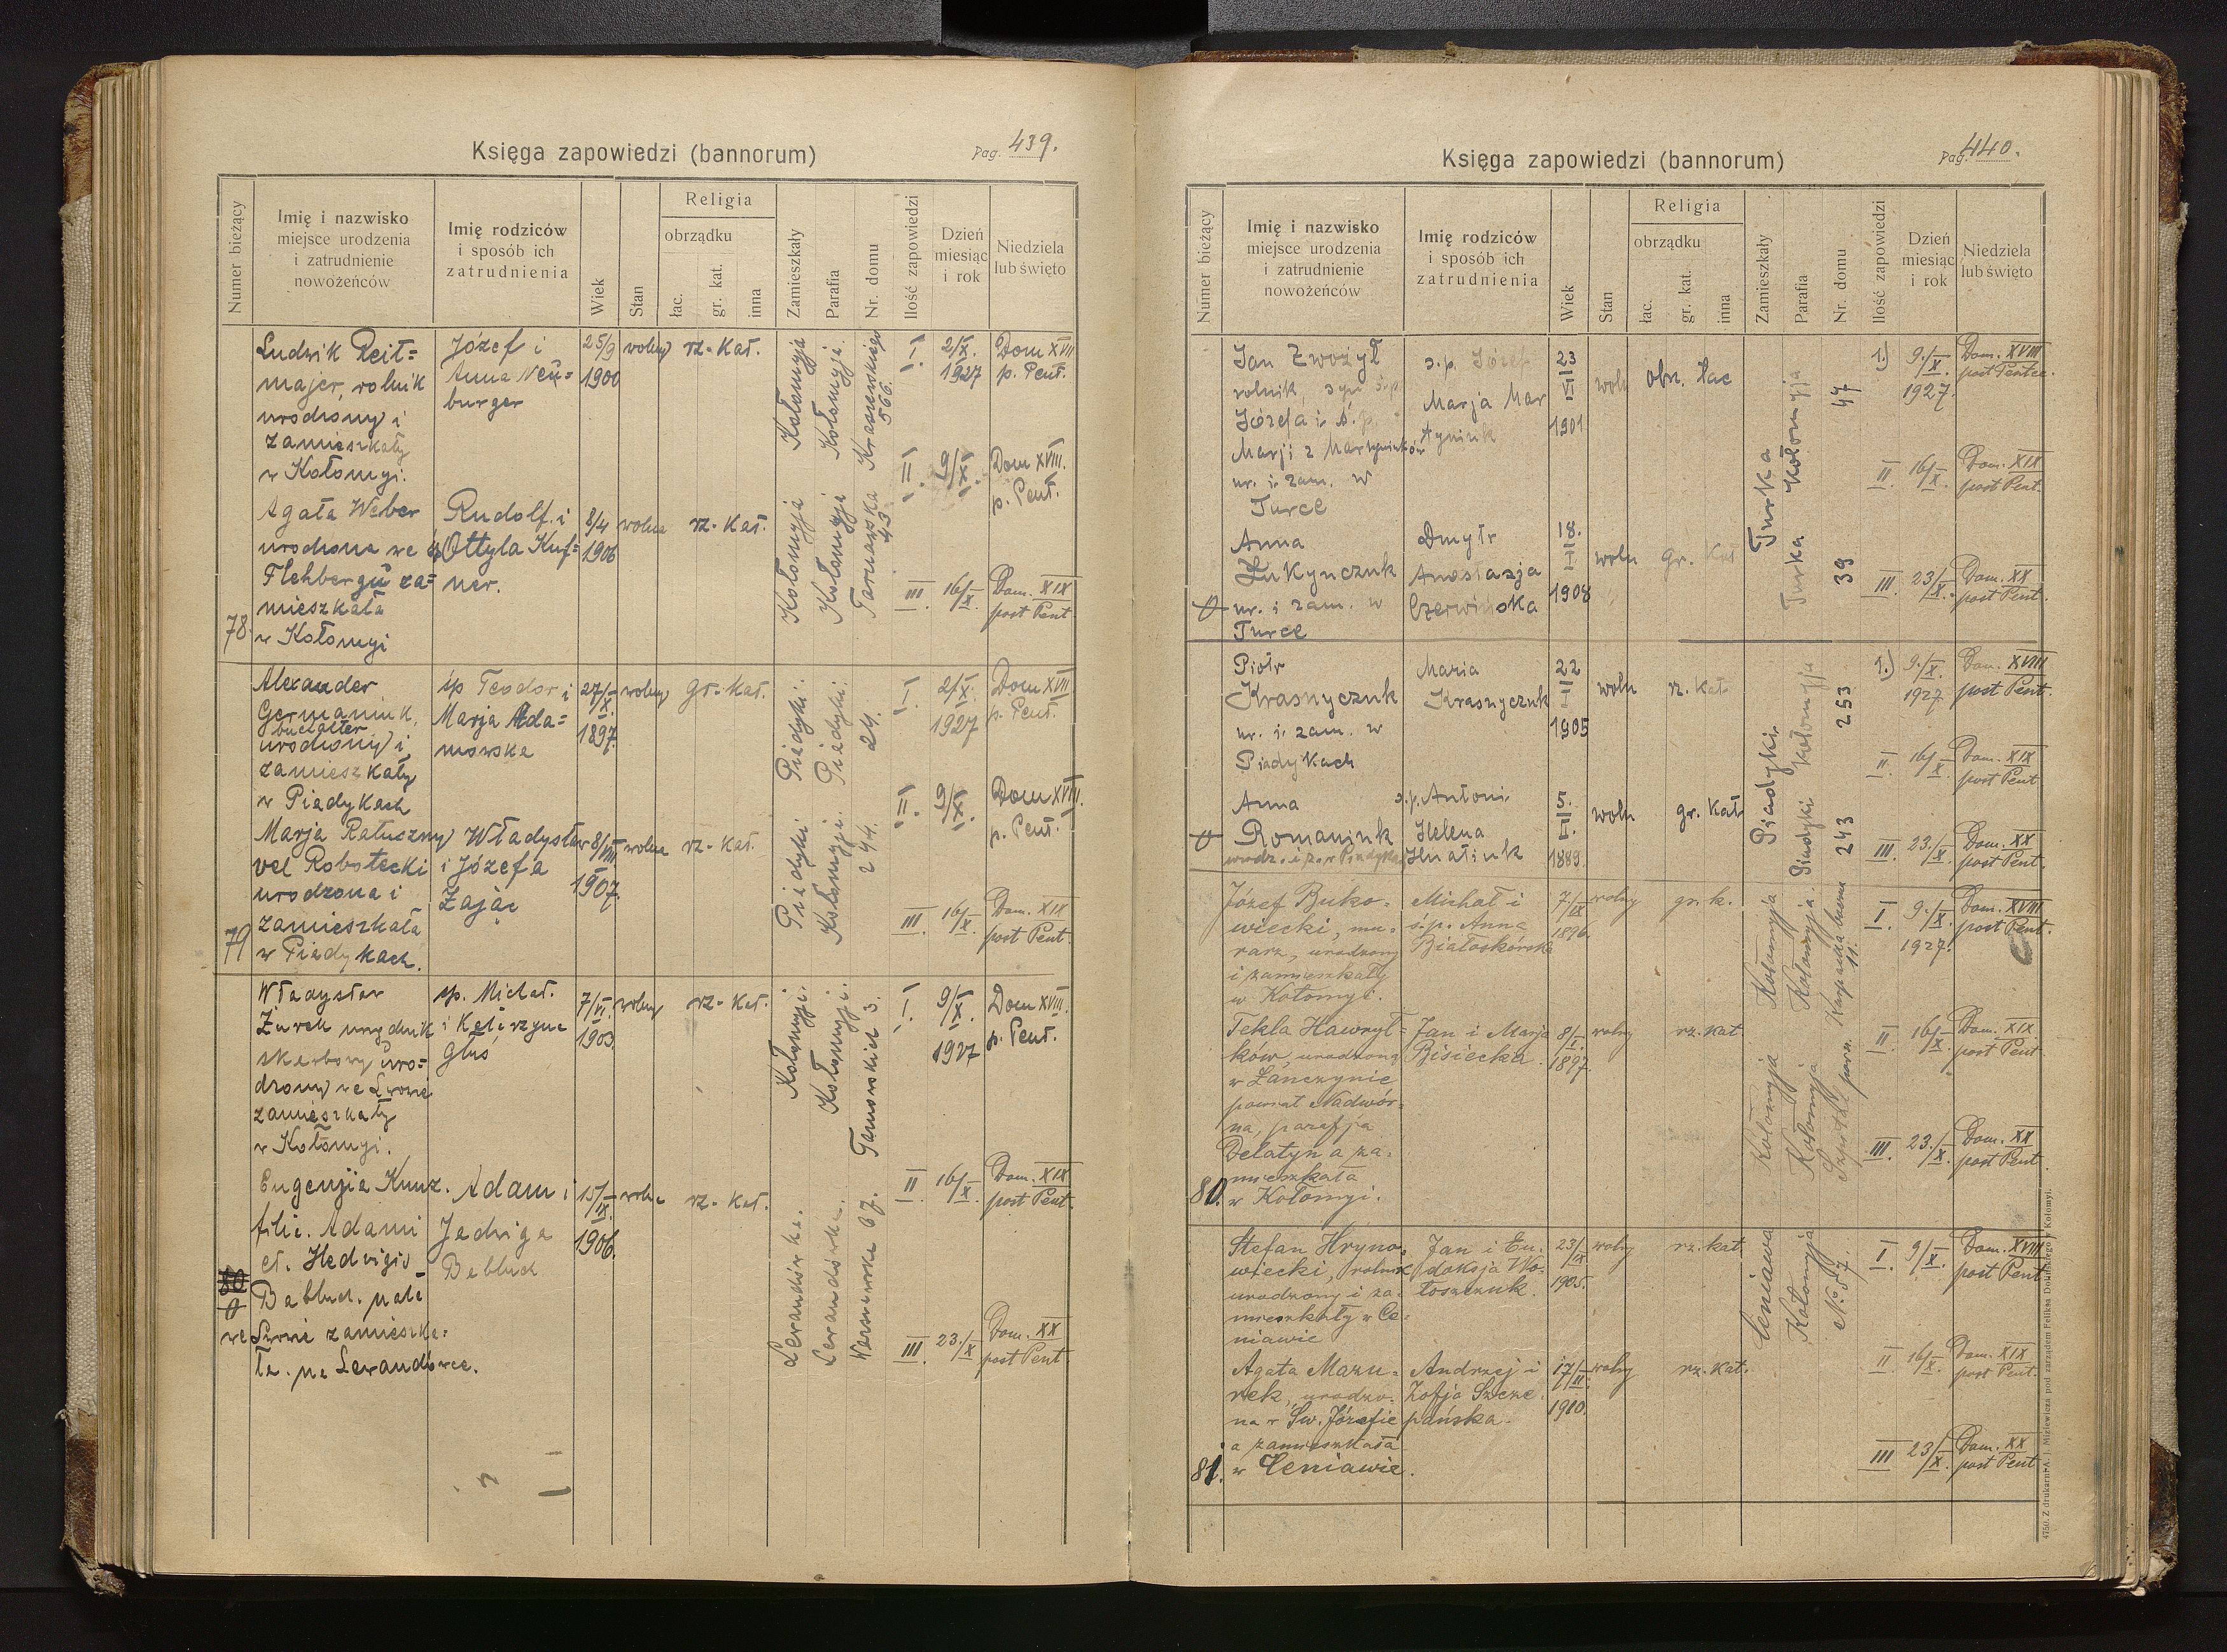 Księga zapowiedzi (bannorum)
Pag. 439.
Numer bieżący
Imię i nazwisko
miejsce urodzenia
i zatrudnienie
nowożeńców
Imię rodziców
i sposób ich
zatrudnienia
Wiek
Stan
Religia
obrządku
łac.
gr. kat.
inna
Zamieszkały
Parafia
Nr. domu
Ilość zapowiedzi
Dzień
miesiąc
i rok
Niedziela
lub święto
78.
Ludwik Reit=
majer, rolnik
urodzony i
zamieszkały
w Kołomyi.
Józef i
Anna Neu=
burger
25/9
1900
wolny
rz-kat.
Kołomyja
Kołomyja.
Kraszewskiego
566.
Agata Weber
urodzona we
Flehbergu za=
mieszkała
w Kołomyi
Rudolf i
Ottyla Kuf=
ner.
8/4
1906
wolna
rz-kat.
Kołomyja
Kołomyja
Tarnawska
43
I. 2/X. 1927
Dom XVII
p. Pent.
II. 9/X.
Dom XVIII.
p. Pent.
III. 16/X.
Dom. XIX
post Pent
79
Alexander
Germaniuk,
buchalter
urodzony i
zamieszkały
w Piadykach
śp Teodor i
Marja Ada=
mowska
27/X.
1897.
wolny
gr.-kat.
Piadyki.
Piadyki.
24.
Marja Ratuszny
vel Robotecki
urodzona i
zamieszkała
w Piadykach.
Władysław
i Józefa
Zając
8/VIII
1907.
wolna
rz-kat.
Piadyki
Kołomyja.
244.
I. 2/X. 1927
Dom XVII
p. Pent.
II. 9/X.
Dom XVIII.
p. Pent.
III. 16/X.
Dom. XIX
post Pent.
80
0
Władysław
Żurek urzędnik
skarbowy uro=
dzony we Lwowie
zamieszkały
w Kołomyi.
śp. Michał.
i Katarzyna
Głuś
7/VI.
1903.
wolny
rz-kat.
Kołomyji.
Kołomyji.
Tarnowskich 3.
Eugenija Kunz.
filia. Adami
et. Hedvigis
Babluch. nata
we Lwowie zamieszka=
ła. na Lewandówce.
Adam i
Jadwiga
Babluch
15/IX.
1906.
wolna
rz-kat.
Lewandówka.
Lewandówka.
67.
I. 9/X. 1927
Dom XVIII.
p. Pent.
II 16/X.
Dom. XIX
post Pent.
III. 23./X
Dom. XX
post Pent.
Księga zapowiedzi (bannorum)
Pag. 440.
Numer bieżący
Imię i nazwisko
miejsce urodzenia
i zatrudnienie
nowożeńców
Imię rodziców
i sposób ich
zatrudnienia
Wiek
Stan
Religia
obrządku
łac.
gr. kat.
inna
Zamieszkały
Parafia
Nr. domu
Ilość zapowiedzi
Dzień
miesiąc
i rok
Niedziela
lub święto
Jan Zwożył
rolnik, syn ś.p.
Józefa i ś.p.
Marji z Martyniuków
ur. i. zam. w
Turce
s.p. Józef
Marja Mar
tyniuk
23
VI
1901
woln
obrz. łac
47
Anna
Łukynczuk
ur. i zam. w
Turce
0
Dmytr
Anastazja
Czerwińska
18.
I
1908
woln
gr. Kat
Turka
Turka Kołomyja
39
1.) 9./X. 1927.
Dom. XVIII
post Pentec.
II. 16/X.
Dom. XIX
post Pent.
III. 23/X.
Dom. XX
post Pent.
Piotr
Krasnyczuk
ur. i. zam. w
Piadykach
Maria
Krasnyczuk
22
I
1905
woln
rz. kat
253
Anna
Romaniuk
urodz. i z. w Piadykach
0
s.p. Antoni
Helena
Hnatiuk
5.
I.
1889.
woln
gr. kat
Piadyki.
Piadyki Kołomyja
243
1.) 9./X. 1927
Dom. XVIII
post Pent.
II. 16/X
Dom. XIX
post Pent
III. 23./X.
Dom. XX
post Pent.
80.
Józef Buko=
wiecki, mu=
rarz, urodzony
i zamieszkały
w Kołomyi.
Michał i
ś.p. Anna
Białoskórska
7/IX
1896.
wolny
gr. k.
Kołomyja
Kołomyja.
11.
Tekla Hawryl=
ków, urodzona
w Łanczynie
powiat Nadwór=
na, parafja
Delatyn a za=
mieszkała
w Kołomyi.
Jan i Marja
Bisiecka
8/I.
1897.
wolny
rz. kat
Kołomyja
Kołomyja
Szpital pow.
I 9./X. 1927.
Dom. XVIII
post Pent.
II 16/X.
Dom. XIX
post Pent
III. 23./X.
Dom. XX
post Pent.
81.
Stefan Hryno=
wiecki, rolnik
urodzony i za=
mieszkały w Ce=
niawie
Jan i Eu=
doksja Wo=
łoszczuk.
23/IX
1905.
wolny
rz. kat.
Ceniawa
Kołomyja
No. 57.
Agata Mazu=
rek, urodzo=
na w Św. Józefie
a zamieszkała
w Ceniawie.
Andrzej i
Zofja Szcze
pańska.
17/II.
1910.
wolny
rz. kat.
I 9/X.
Dom. XVIII
post Pent
II 16/X.
Dom. XIX
post Pent.
III 23/X.
Dom. XX
post Pent
4750. Z drukarni A. J. Miziewicza pod zarządem Feliksa Dolińskiego w Kołomyi.